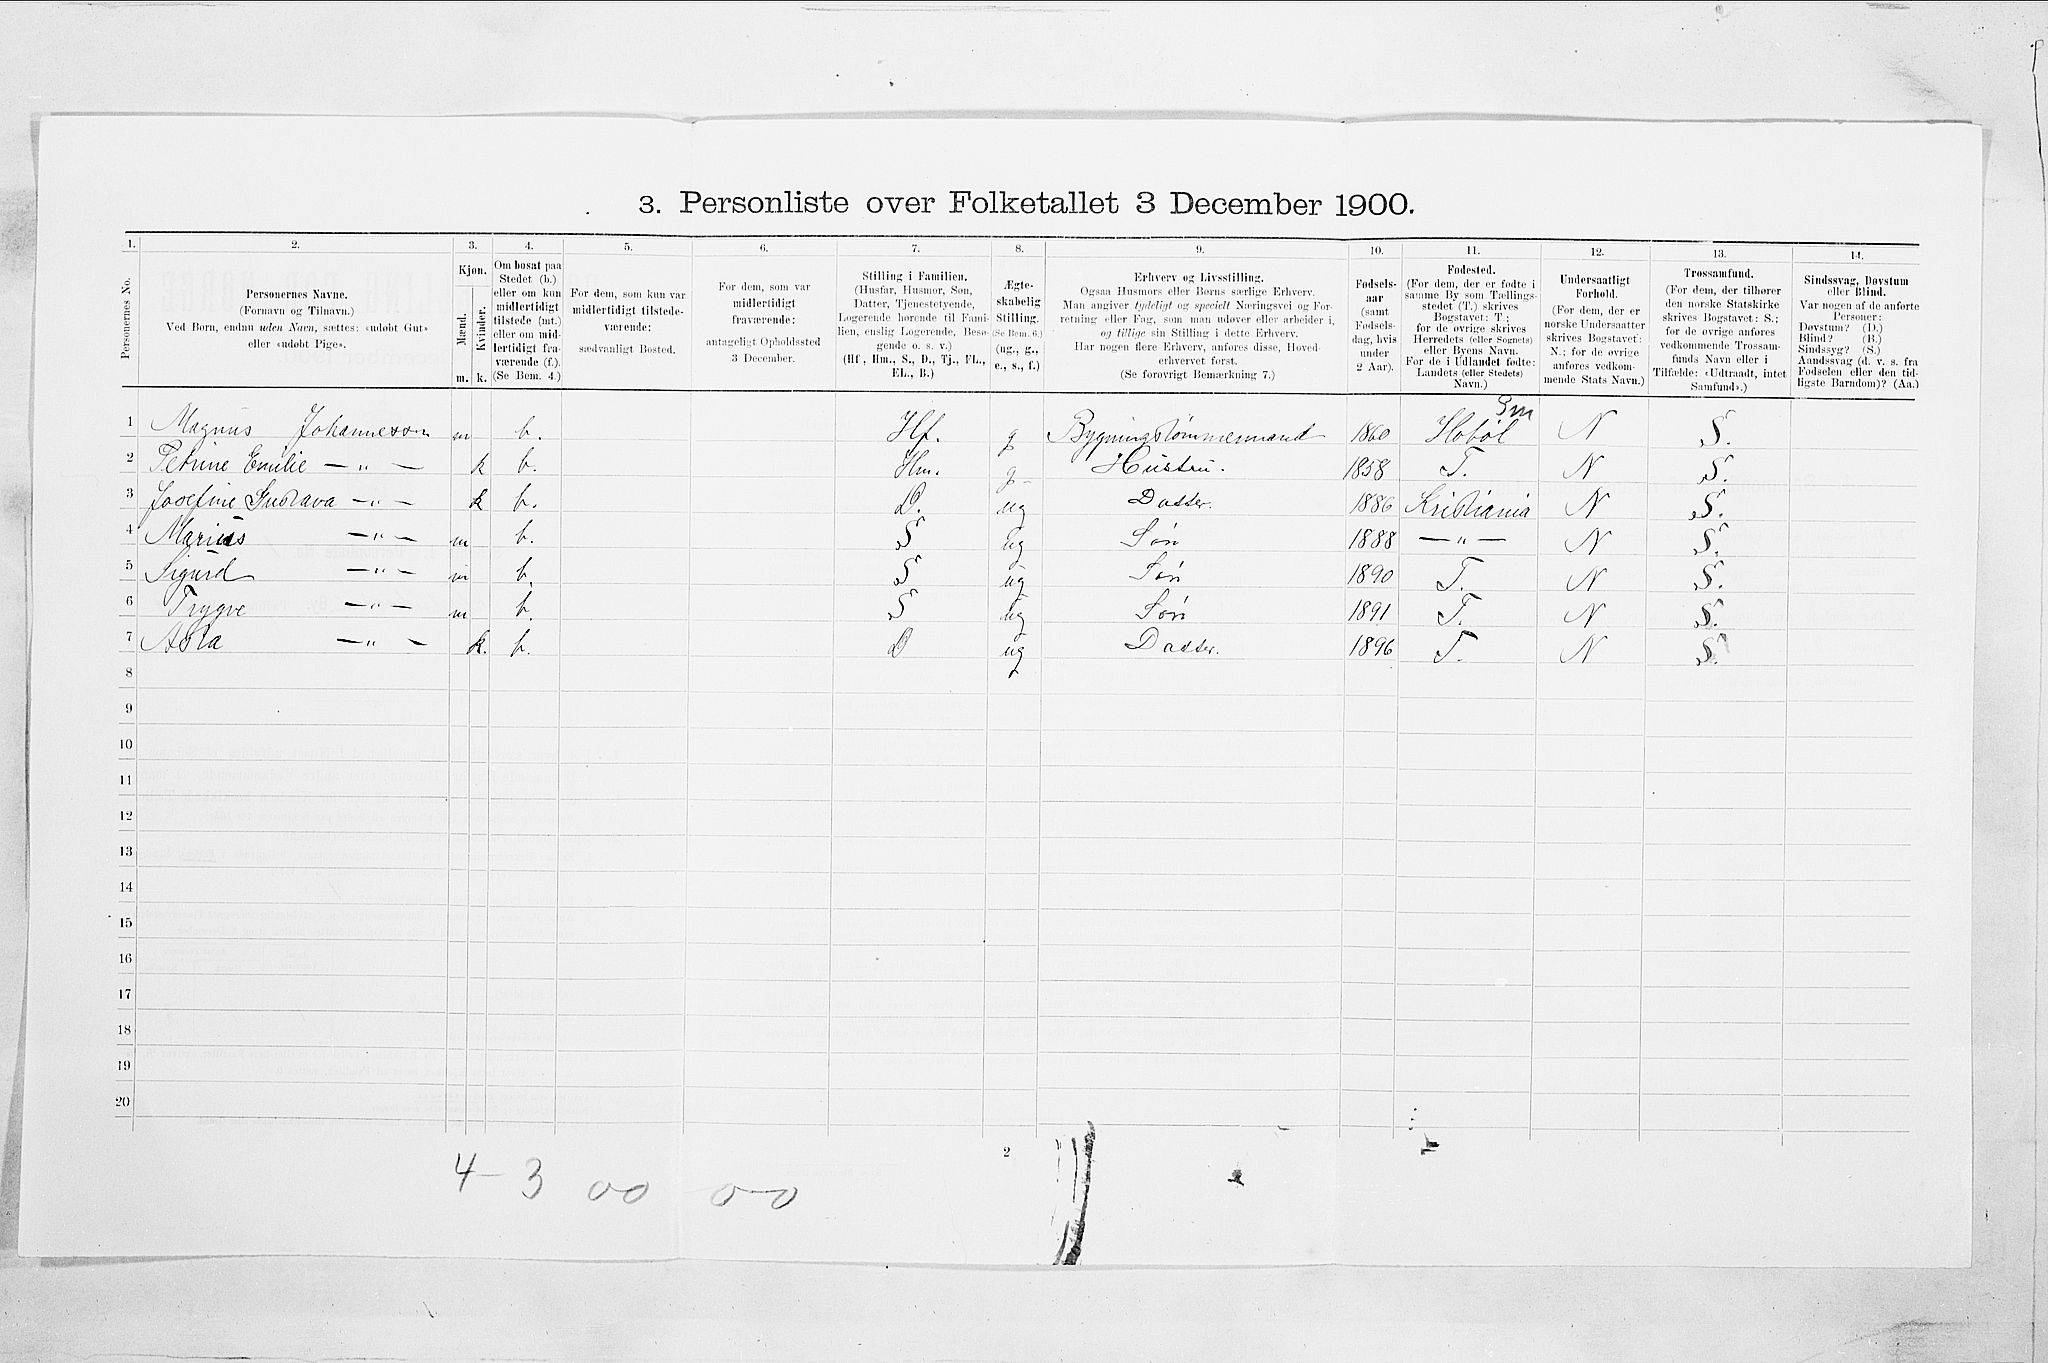 3. Personliste over Folketallet 3 December 1900.
1. 2. 3. 4. 5. 6. 7. 8. 9. 10. 11. 12. 13. 14.
Personernes No.
Personernes Navne.
(Fornavn og Tilnavn.)
Ved Børn, endnu uden Navn, sættes: «udøbt Gut»
eller «udøbt Pige».
Kjøn.
Mænd.
Kvinder.
m. k.
Om bosat paa
Stedet (b.)
eller om kun
midlertidigt
tilstede (mt.)
eller om mid-
lertidigt fra-
værende (f.).
(Se Bem. 4.)
For dem, som kun var
midlertidigt tilstede-
værende:
sædvanligt Bosted.
For dem, som var
midlertidigt
fraværende:
antageligt Opholdssted
3 December.
Stilling i Familien.
(Husfar, Husmor, Søn,
Datter, Tjenestetyende,
Logerende hørende til Fami-
lien, enslig Logerende, Besø-
gende o. s. v.)
(Hf., Hm., S., D., Tj., FL.,
EL., B.)
Ægte-
skabelig
Stilling.
(Se Bem. 6.)
(ug., g.,
e., s., f.)
Erhverv og Livsstilling.
Ogsaa Husmors eller Børns særlige Erhverv.
Man angiver tydeligt og specielt Næringsvei og For-
retning eller Fag, som man udøver eller arbeider i,
og tillige sin Stilling i dette Erhverv.
Har nogen flere Erhverv, anføres disse, Hoved-
erhvervet først.
(Se forøvrigt Bemærkning 7.)
Fødsels-
aar
(samt
Fødsels-
dag, hvis
under
2 Aar).
Fødested.
(For dem, der er fødte i
samme By som Tællings-
stedet (T.) skrives
Bogstavet: T;
for de øvrige skrives
Herredets (eller Sognets)
eller Byens Navn.
For de i Udlandet fødte:
Landets (eller Stedets)
Navn.)
Undersaatligt
Forhold.
(For dem, der er
norske Undersaatter
skrives Bogstavet:
N.; for de øvrige
anføres vedkom-
mende Stats Navn.)
Trossamfund.
(For dem, der tilhører
den norske Statskirke
skrives Bogstavet: S.;
for de øvrige anføres
vedkommende Trossam-
funds Navn eller i
Tilfælde: «Udtraadt, intet
Samfund».)
Sindssvag, Døvstum
eller Blind.
Var nogen af de anførte
Personer:
Døvstum? (D.)
Blind? (B.)
Sindssyg? (S.)
Aandssvag (d. v. s. fra
Fødselen eller den tid-
ligste Barndom)? (Aa.)
1 Magnus Johannesson m b. Hf. g Bygningstømmermand 1860 Hobøl Sm N S.
2 Petrine Emilie —„— k b. Hm. g- Hustru. 1858 T. N S.
3 Josefine Gustava —„— k b. D. ug Datter. 1886 Kristiania N S.
4 Marius —„— m b. S ug Søn 1888 —„— N S.
5 Sigurd —„— m b. S ug Søn 1890 T. N S.
6 Trygve —„— m b. S ug Søn 1891 T. N S.
7 Asta —„— k. b. D ug Datter. 1896 T. N S.
8
9
10
11
12
13
14
15
16
17
18
19
20
2
4 - 3 00 0-0